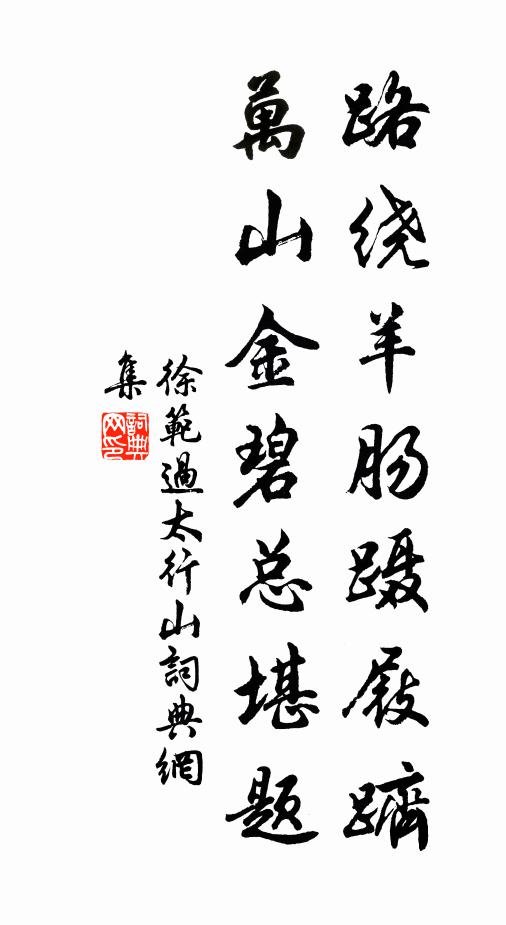 路绕羊肠蹑屐跻
萬山金碧总堪题
徐範過太行山詞典網
集
詞典
网印